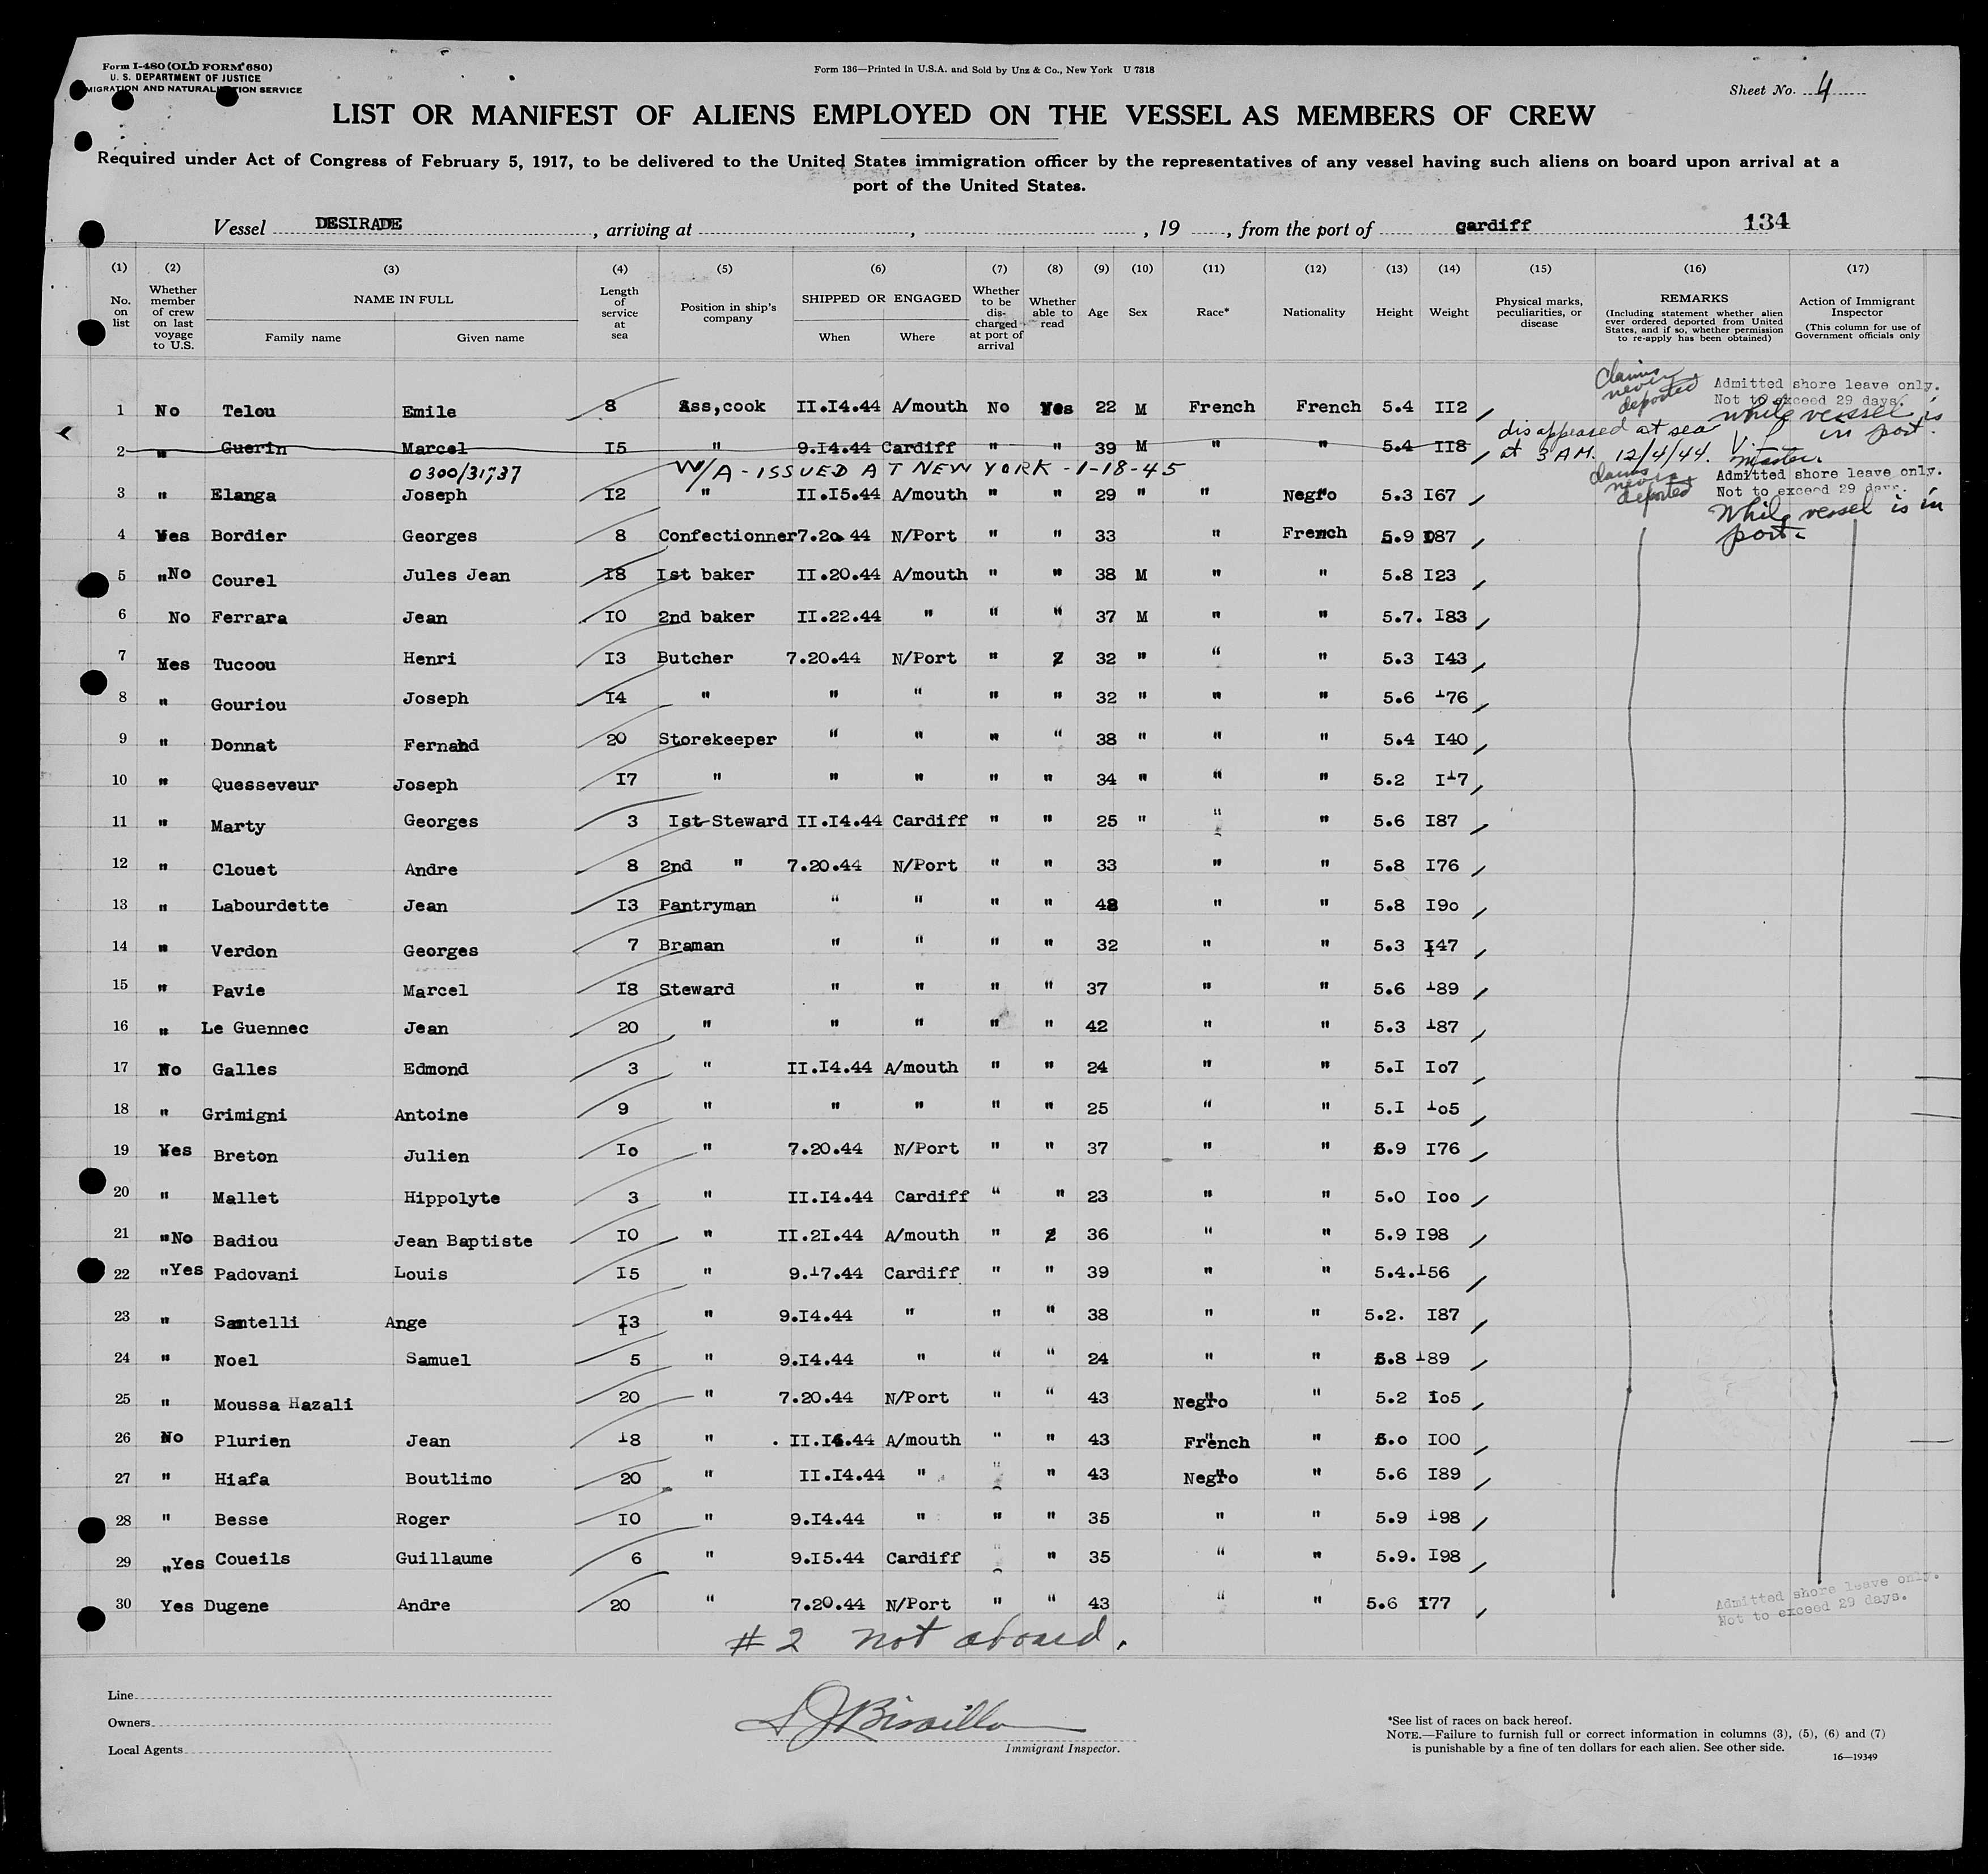 Form I-480 (OLD FORM 680)
U. S. DEPARTMENT OF JUSTICE
MIGRATION AND NATURALIZATION SERVICE
Form 136—Printed in U.S.A. and Sold by Unz & Co., New York U 7318
Sheet No. 4
LIST OR MANIFEST OF ALIENS EMPLOYED ON THE VESSEL AS MEMBERS OF CREW
Required under Act of Congress of February 5, 1917, to be delivered to the United States immigration officer by the representatives of any vessel having such aliens on board upon arrival at a
port of the United States.
Vessel DESIRADE, arriving at , , 19 , from the port of cardiff 134
(1) (2) (3) (4) (5) (6) (7) (8) (9) (10) (11) (12) (13) (14) (15) (16) (17)
No. on list
Whether member of crew on last voyage to U.S.
NAME IN FULL
Family name Given name
Length of service at sea
Position in ship's company
SHIPPED OR ENGAGED
When Where
Whether to be discharged at port of arrival
Whether able to read
Age Sex Race* Nationality Height Weight
Physical marks, peculiarities, or disease
REMARKS
(Including statement whether alien ever ordered deported from United States, and if so, whether permission to re-apply has been obtained)
Action of Immigrant Inspector
(This column for use of Government officials only
1 No Telou Emile 8 Ass,cook II.I4.44 A/mouth No Yes 22 M French French 5.4 II2 Claims never deported Admitted shore leave only. Not to exceed 29 days. while vessel is in port.
2 " Guerin Marcel I5 " 9.I4.44 Cardiff " " 39 M " " 5.4 II8 disappeared at sea at 3 AM. 12/4/44. Master.
0300/31737 W/A - ISSUED AT NEW YORK - 1-18-45
3 " Elanga Joseph I2 " II.I5.44 A/mouth " " 29 " " Negro 5.3 I67 Claims never deported Admitted shore leave only. Not to exceed 29 days. While vessel is in port.
4 Yes Bordier Georges 8 Confectionner 7.20.44 N/Port " " 33 " French 5.9 I87
5 "No Courel Jules Jean I8 Ist baker II.20.44 A/mouth " " 38 M " " 5.8 I23
6 No Ferrara Jean IO 2nd baker II.22.44 " " " 37 M " " 5.7. I83
7 Yes Tucoou Henri I3 Butcher 7.20.44 N/Port " " 32 " " " 5.3 I43
8 " Gouriou Joseph I4 " " " " " 32 " " " 5.6 I76
9 " Donnat Fernand 20 Storekeeper " " " " 38 " " " 5.4 I40
10 " Quesseveur Joseph I7 " " " " " 34 " " " 5.2 II7
11 " Marty Georges 3 Ist Steward II.I4.44 Cardiff " " 25 " " " 5.6 I87
12 " Clouet Andre 8 2nd " 7.20.44 N/Port " " 33 " " 5.8 I76
13 " Labourdette Jean I3 Pantryman " " " " 48 " " 5.8 I9o
14 " Verdon Georges 7 Braman " " " " 32 " " 5.3 I47
15 " Pavie Marcel I8 Steward " " " " 37 " " 5.6 I89
16 " Le Guennec Jean 20 " " " " " 42 " " 5.3 I87
17 No Galles Edmond 3 " II.I4.44 A/mouth " " 24 " " 5.I Io7
18 " Grimigni Antoine 9 " " " " " 25 " " 5.I Io5
19 Yes Breton Julien Io " 7.20.44 N/Port " " 37 " " 5.9 I76
20 " Mallet Hippolyte 3 " II.I4.44 Cardiff " " 23 " " 5.0 Ioo
21 "No Badiou Jean Baptiste IO " II.2I.44 A/mouth " " 36 " " 5.9 I98
22 "Yes Padovani Louis I5 " 9.I7.44 Cardiff " " 39 " " 5.4. I56
23 " Santelli Ange I3 " 9.I4.44 " " " 38 " " 5.2. I87
24 " Noel Samuel 5 " 9.I4.44 " " " 24 " " 5.8 I89
25 " Moussa Hazali 20 " 7.20.44 N/Port " " 43 Negro " 5.2 Io5
26 No Plurien Jean I8 " II.I4.44 A/mouth " " 43 French " 5.o IOO
27 " Hiafa Boutlimo 20 " II.I4.44 " " " 43 Negro " 5.6 I89
28 " Besse Roger IO " 9.I4.44 " " " 35 " " 5.9 I98
29 "Yes Coueils Guillaume 6 " 9.I5.44 Cardiff " " 35 " " 5.9. I98
30 Yes Dugene Andre 20 " 7.20.44 N/Port " " 43 " " 5.6 I77 Admitted shore leave only. Not to exceed 29 days.
#2 not aboard.
Line
Owners
Local Agents
Immigrant Inspector.
*See list of races on back hereof.
NOTE.—Failure to furnish full or correct information in columns (3), (5), (6) and (7)
is punishable by a fine of ten dollars for each alien. See other side.
16—19349